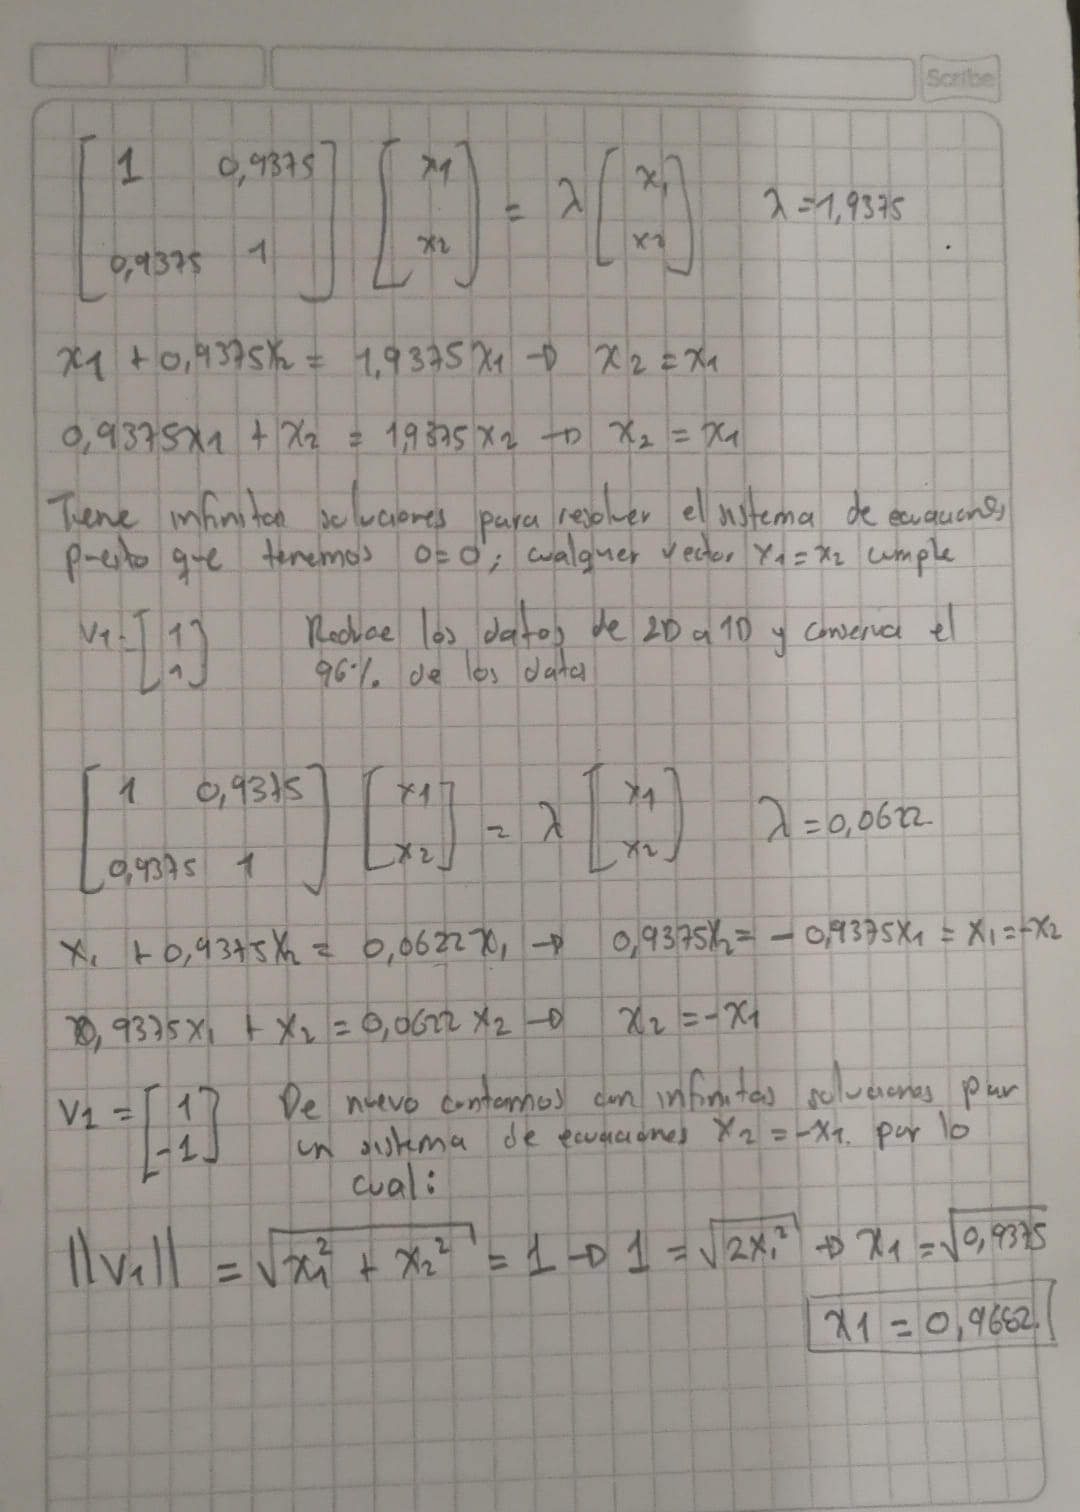 Scribe
[1 0,9375
0,9375 1] [x1
x2] = λ [x1
x2] λ=1,9375
x1 + 0,9375x2 = 1,9375x1 → x2 = x1
0,9375x1 + x2 = 1,9375x2 → x2 = x1
Tiene infinitas soluciones para resolver el sistema de ecuaciones
puesto que tenemos 0=0; cualquier vector x1=x2 cumple
V1=[1
1] Reduce los datos de 2D a 1D y conserva el
96% de los data
[1 0,9375
0,9375 1] [x1
x2] = λ [x1
x2] λ=0,0622
x1 + 0,9375x2 = 0,0622x1 → 0,9375x2 = -0,9375x1 = x1=-x2
0,9375x1 + x2 = 0,0622x2 → x2=-x1
V2=[1
-1] De nuevo contamos con infinitas soluciones par
un sistema de ecuaciones x2=-x1. por lo
cual:
||V1|| = √x1² + x2² = 1 → 1 = √2x1² → x1=√0,9375
x1 = 0,9682.